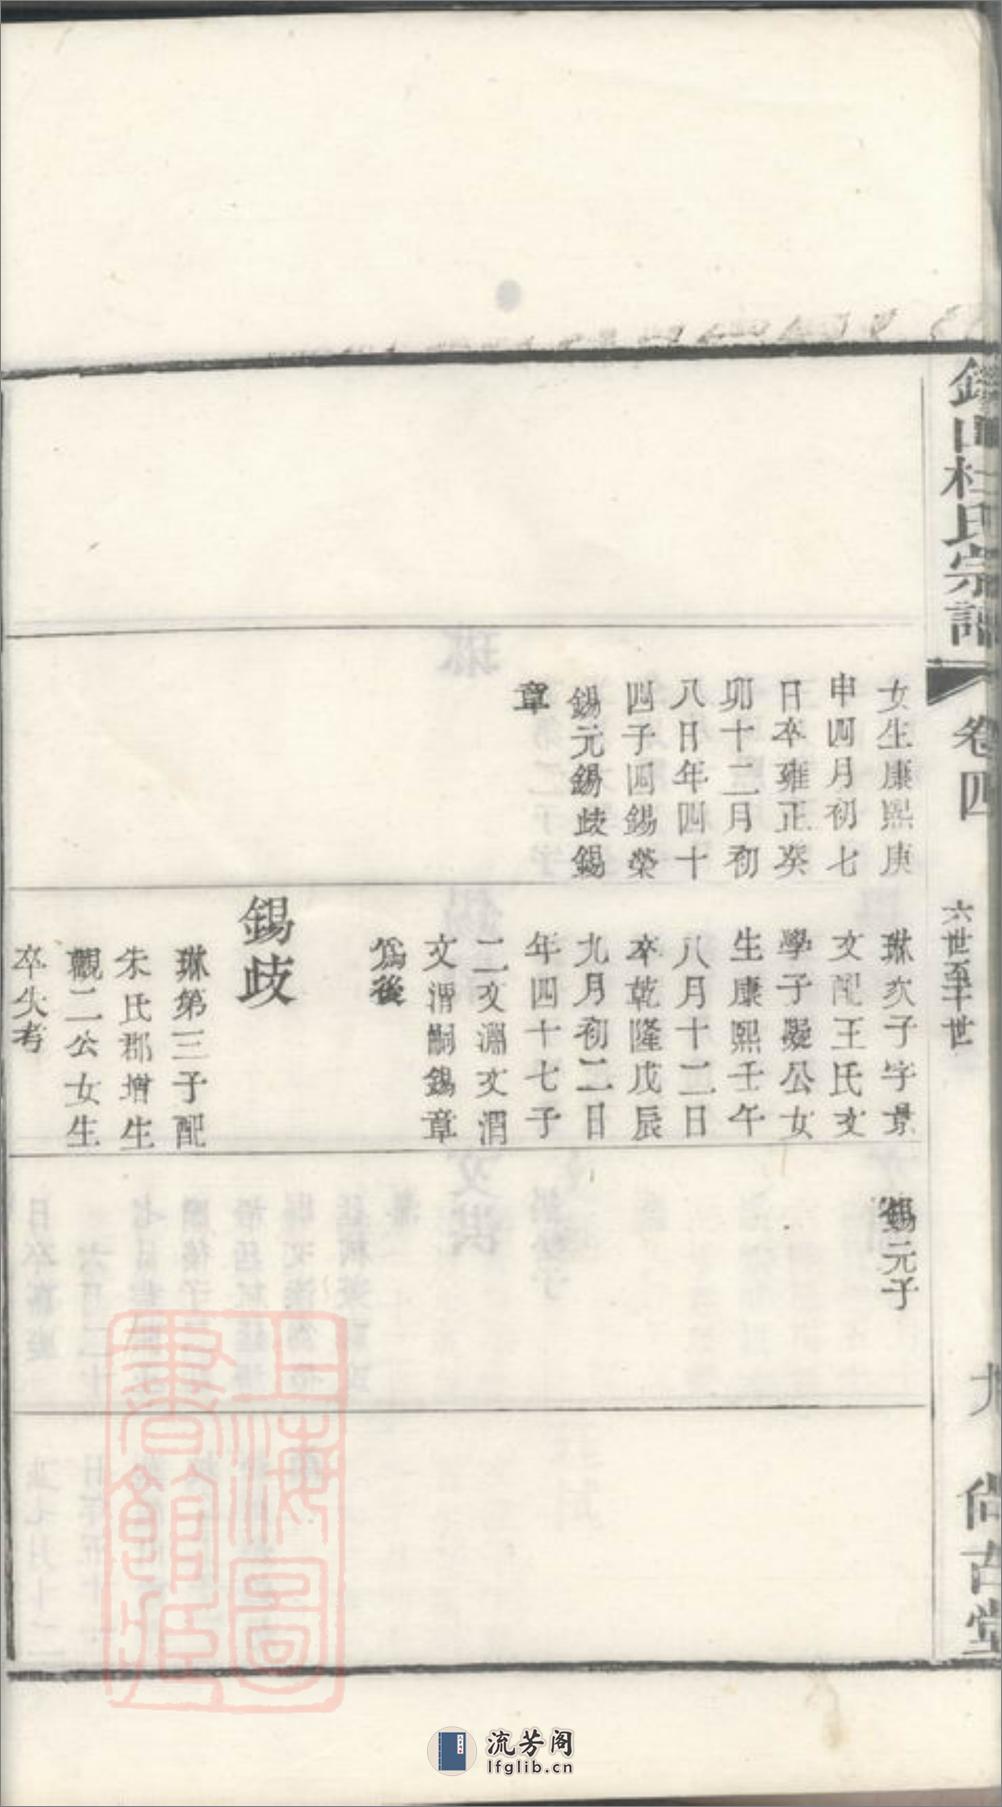 山杜氏宗譜
卷四
六世至十世
九
尚古堂
女生康熙庚
申四月初七
日卒雍正癸
卯十二月初
八日年四十
四子四錫榮
錫元錫歧錫
章
琳次子字景
文配王氏文
學子嶷公女
生康熙壬午
八月十二日
卒乾隆戊辰
九月初二日
年四十七子
二文淵文渭
文渭嗣錫章
為後
錫歧
琳第三子配
朱氏郡增生
觀二公女生
卒失考
錫元子
上海圖
書館藏
流芳阁
lfglib.cn